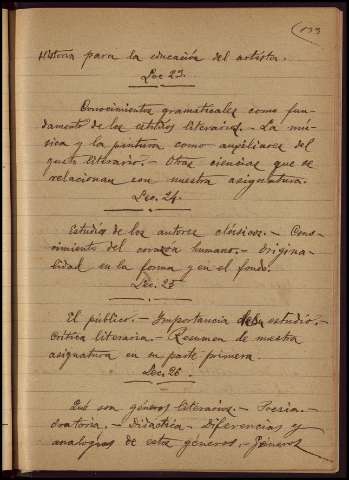 133
Historia para la educación del artista.
Lec 23.
Conocimientos gramaticales como fun-
damento de los estilos literarios. - La mú-
sica y la pintura como auxiliares del
gusto literario. - Otras ciencias que se
relacionan con nuestra asignatura.
Lec. 24.
Estudios de los autores clásicos. - Cono-
cimiento del corazón humano. - Origina-
lidad en la forma y en el fondo.
Lec. 25
El público. - Importancia de su estudio. -
Crítica literaria. - Resumen de nuestra
asignatura en su parte primera.
Lec. 26.
Qué son géneros literarios. - Poesia. -
Oratoria. - Didáctica. - Diferencias y
analogías de estos géneros. - Géneros